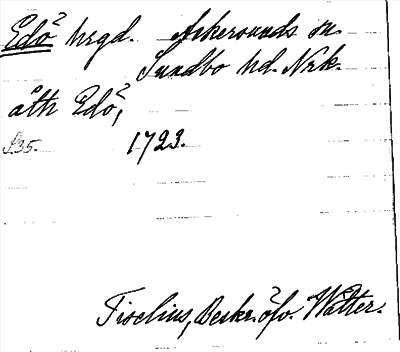 Edö² hrgd. Askersunds sn.
Sundbo hd. Nrk.
åth Edö²,
S. 35. 1723.
Tiselius, Beskr. öfv. Wätter.